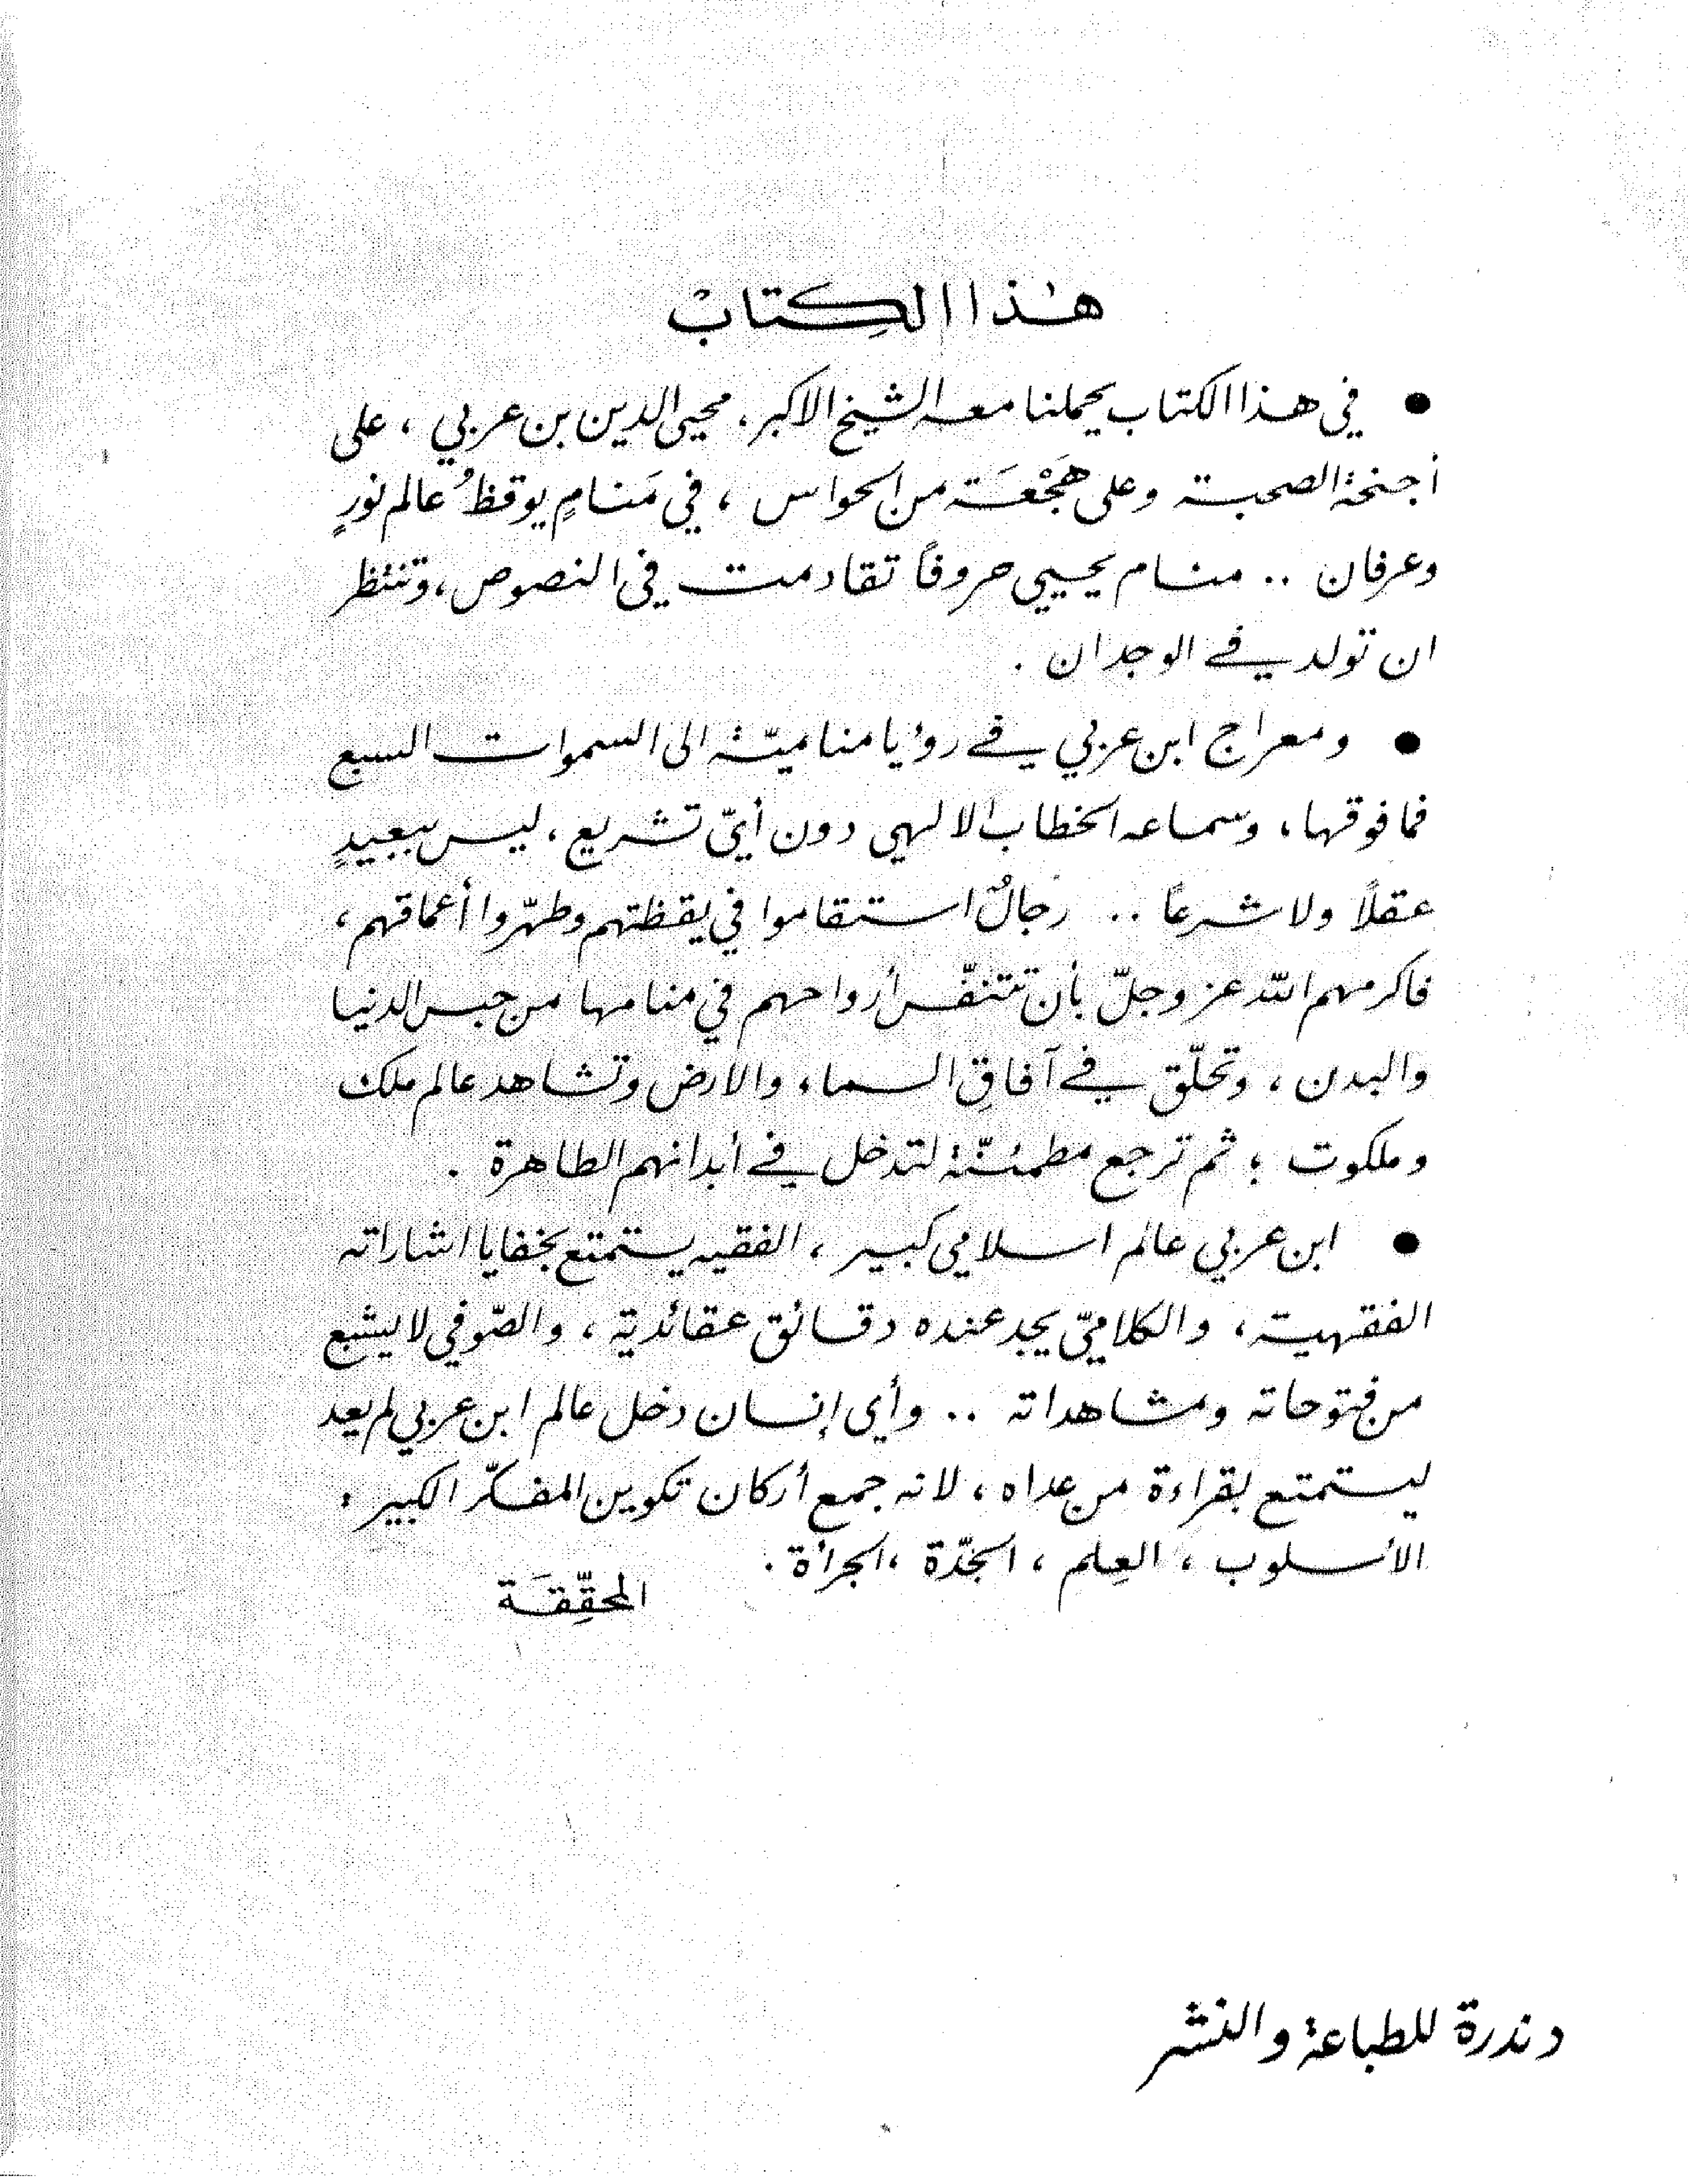 هٰذا الكِتابْ
● في هذا الكتاب يحملنا معه الشيخ الاكبر، محيي الدين بن عربي ، على
أجنحة الصحبة وعلى هَجْعَة من الحواس ، في مَنامٍ يوقظُ عالم نورٍ
وعرفان .. منام يحيي حروفاً تقادمت في النصوص ، وتنتظر
ان تولد في الوجدان .
● ومعراج ابن عربي في رؤيا مناميّة الى السموات السبع
فما فوقها ، وسماعه الخطاب الالهي دون أيّ تشريع ، ليس ببعيدٍ
عقلاً ولا شرعاً .. رجالٌ استقاموا في يقظتهم وطهّروا أعماقهم ،
فاكرمهم اللّه عز وجلّ بأن تتنفّس أرواحهم في منامها من حبس الدنيا
والبدن ، وتحلّق في آفاقِ السماء والارض وتشاهد عالم ملك
وملكوت ؛ ثم ترجع مطمئنّة لتدخل في أبدانهم الطاهرة .
● ابن عربي عالم اسلامي كبير ، الفقيه يستمتع بخفايا اشاراته
الفقهية ، والكلاميّ يجد عنده دقائق عقائديّة ، والصّوفي لا يشبع
من فتوحاته ومشاهداته .. وأي إنسان دخل عالم ابن عربي لم يعد
ليستمتع بقراءة من عداه ، لانه جمع أركان تكوين المفكّر الكبير :
الأسلوب ، العِلم ، الجدّة ، الجرأة .
المحقِّقَة
دندرة للطباعة والنشر